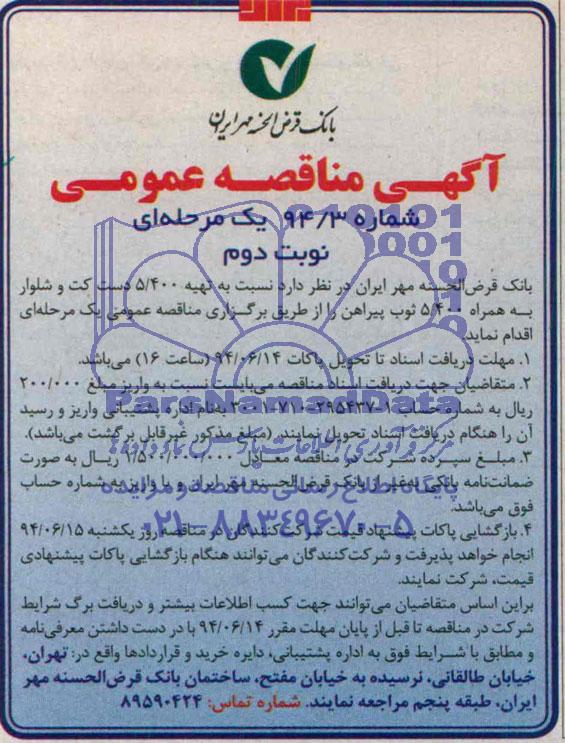 بانک قرض الحسنه مهر ایران
آگهی مناقصه عمومی
شماره ۹۴/۳ یک مرحله‌ای
نوبت دوم
بانک قرض‌الحسنه مهر ایران در نظر دارد نسبت به تهیه ۵/۴۰۰ دست کت و شلوار
به همراه ۵/۴۰۰ ثوب پیراهن را از طریق برگزاری مناقصه عمومی یک مرحله‌ای
اقدام نماید.
۱. مهلت دریافت اسناد تا تحویل پاکات ۹۴/۰۶/۱۴ (ساعت ۱۶) می‌باشد.
۲. متقاضیان جهت دریافت اسناد مناقصه می‌بایست نسبت به واریز مبلغ ۲۰۰/۰۰۰
ریال به شماره حساب ۱-۲۹۵۴۳۷-۷۱۰-۳۰۰۱ بنام اداره پشتیبانی واریز و رسید
آن را هنگام دریافت اسناد تحویل نمایند. (مبلغ مذکور غیرقابل برگشت می‌باشد).
۳. مبلغ سپرده شرکت در مناقصه معادل ۱/۵۰۰/۰۰۰/۰۰۰ ریال به صورت
ضمانت‌نامه بانکی به‌غیر از بانک قرض‌الحسنه مهر ایران و یا واریز به شماره حساب
فوق می‌باشد.
۴. بازگشایی پاکات پیشنهاد قیمت شرکت‌کنندگان در مناقصه روز یکشنبه ۹۴/۰۶/۱۵
انجام خواهد پذیرفت و شرکت‌کنندگان می‌توانند هنگام بازگشایی پاکات پیشنهادی
قیمت، شرکت نمایند.
براین اساس متقاضیان می‌توانند جهت کسب اطلاعات بیشتر و دریافت برگ شرایط
شرکت در مناقصه تا قبل از پایان مهلت مقرر ۹۴/۰۶/۱۴ با در دست داشتن معرفی‌نامه
و مطابق با شرایط فوق به اداره پشتیبانی، دایره خرید و قراردادها واقع در: تهران،
خیابان طالقانی، نرسیده به خیابان مفتح، ساختمان بانک قرض‌الحسنه مهر
ایران، طبقه پنجم مراجعه نمایند. شماره تماس: ۸۹۵۹۰۴۲۴
ParsNamadData
پایگاه اطلاع رسانی مناقصه و مزایده
۰۲۱-۸۸۳۴۹۶۷۰-۵